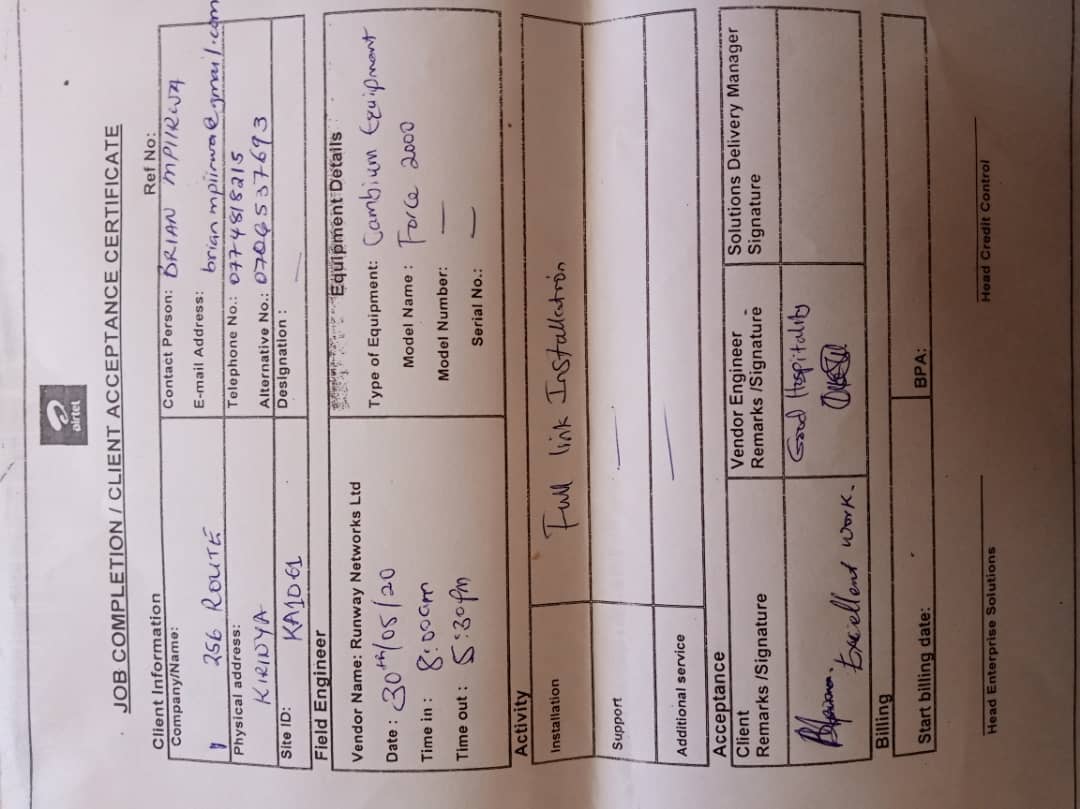 airtel
JOB COMPLETION / CLIENT ACCEPTANCE CERTIFICATE
Ref No:
Client Information
Company/Name:
256 ROUTE
Contact Person: BRIAN MPIIRWA
E-mail Address: brianmpiirwa@gmail.com
Physical address:
KIRINYA
Telephone No.: 0774818215
Alternative No.: 0706537693
Site ID: KA1061
Designation : —
Field Engineer
Equipment Details
Vendor Name: Runway Networks Ltd
Date : 30th/05/20
Time in : 8:00am
Time out : 5:30pm
Type of Equipment: Cambium Equipment
Model Name : Force 2000
Model Number: —
Serial No.: —
Activity
Installation
Full link Installation
Support
—
Additional service
—
Acceptance
Client
Remarks /Signature
Vendor Engineer
Remarks /Signature
Solutions Delivery Manager
Signature
Excellent work.
Good Hospitality
Billing
Start billing date:
BPA:
Head Enterprise Solutions
Head Credit Control